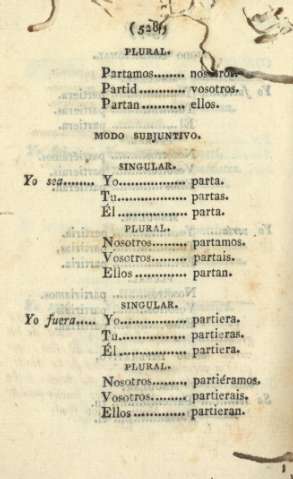 (528)
PLURAL.
Partamos........ nosotros.
Partid............ vosotros.
Partan........... ellos.
MODO SUBJUNTIVO.
SINGULAR.
Yo sea........ Yo................. parta.
Tu................. partas.
Él................. parta.
PLURAL.
Nosotros......... partamos.
Vosotros......... partais.
Ellos............. partan.
SINGULAR.
Yo fuera..... Yo................. partiera.
Tu................. partieras.
Él................. partiera.
PLURAL.
Nosotros......... partiéramos.
Vosotros......... partierais.
Ellos............. partieran.